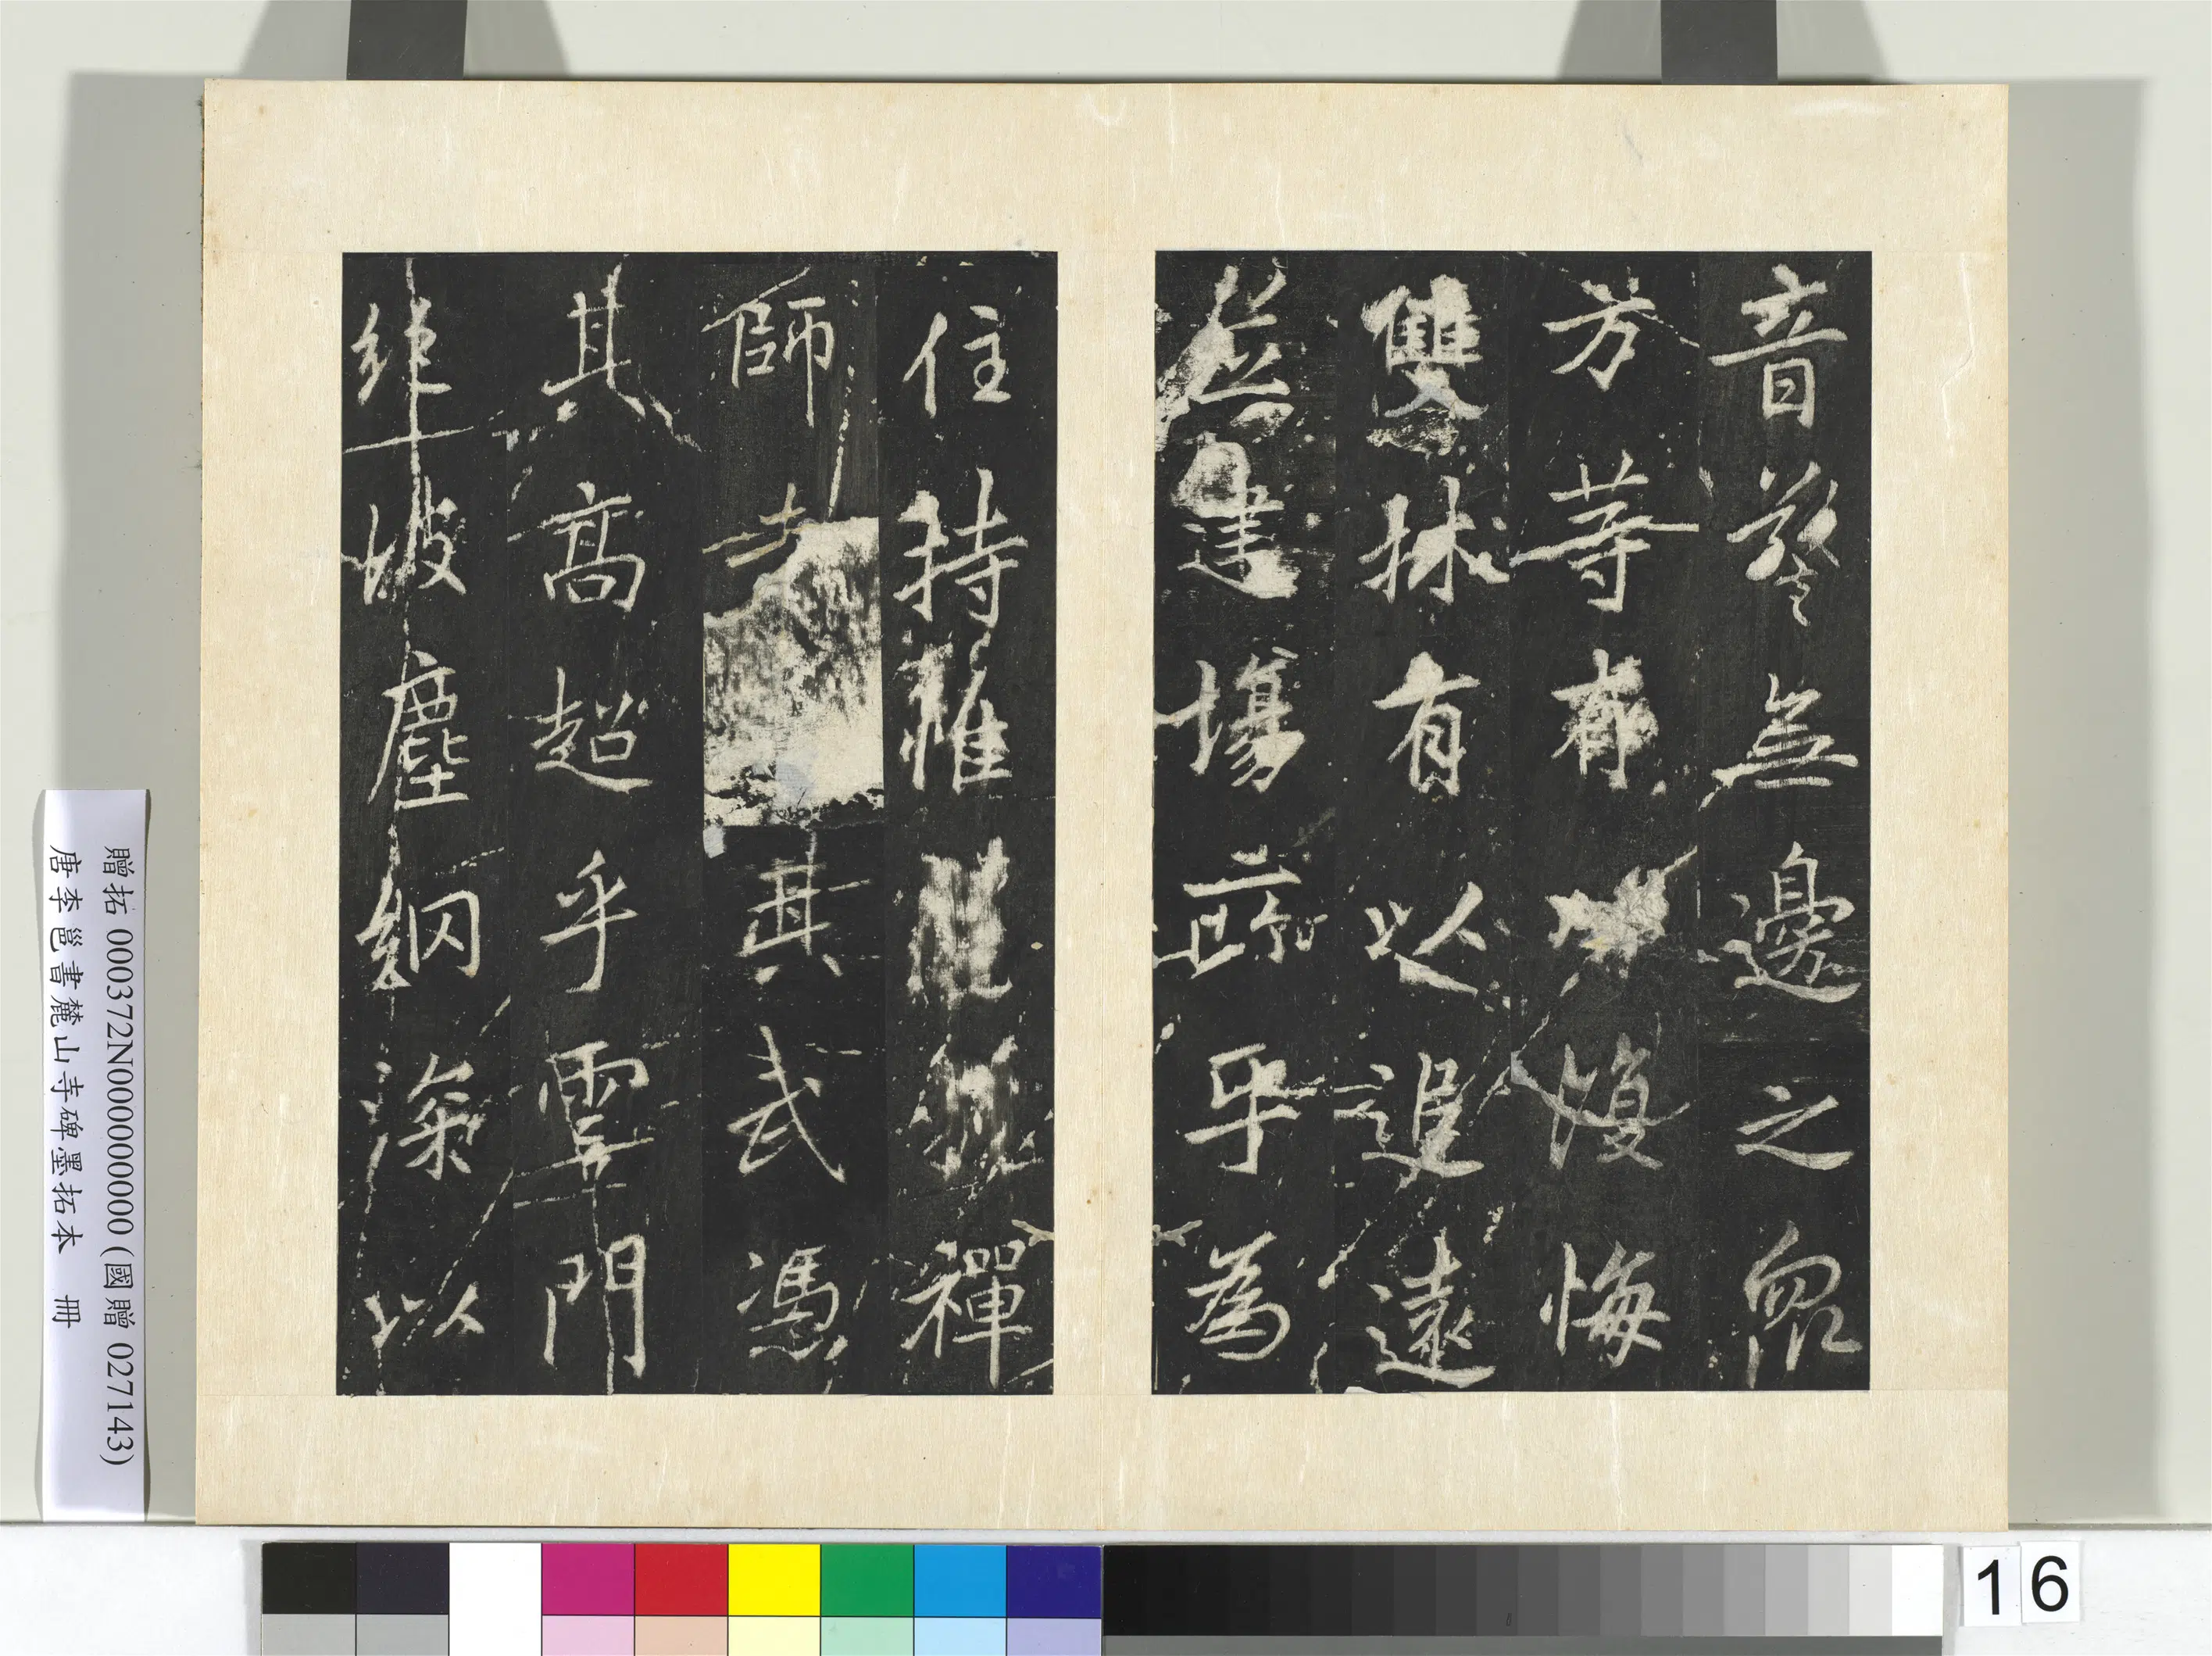 音警無邊之眾
方等復悔
雙林有以追遠
建場乎為
住持惟禪
師其武憑
其高超乎雲門
彼塵網深以
贈拓 000372N000000000 (國贈 027143)
唐李邕書麓山寺碑墨拓本 冊
16